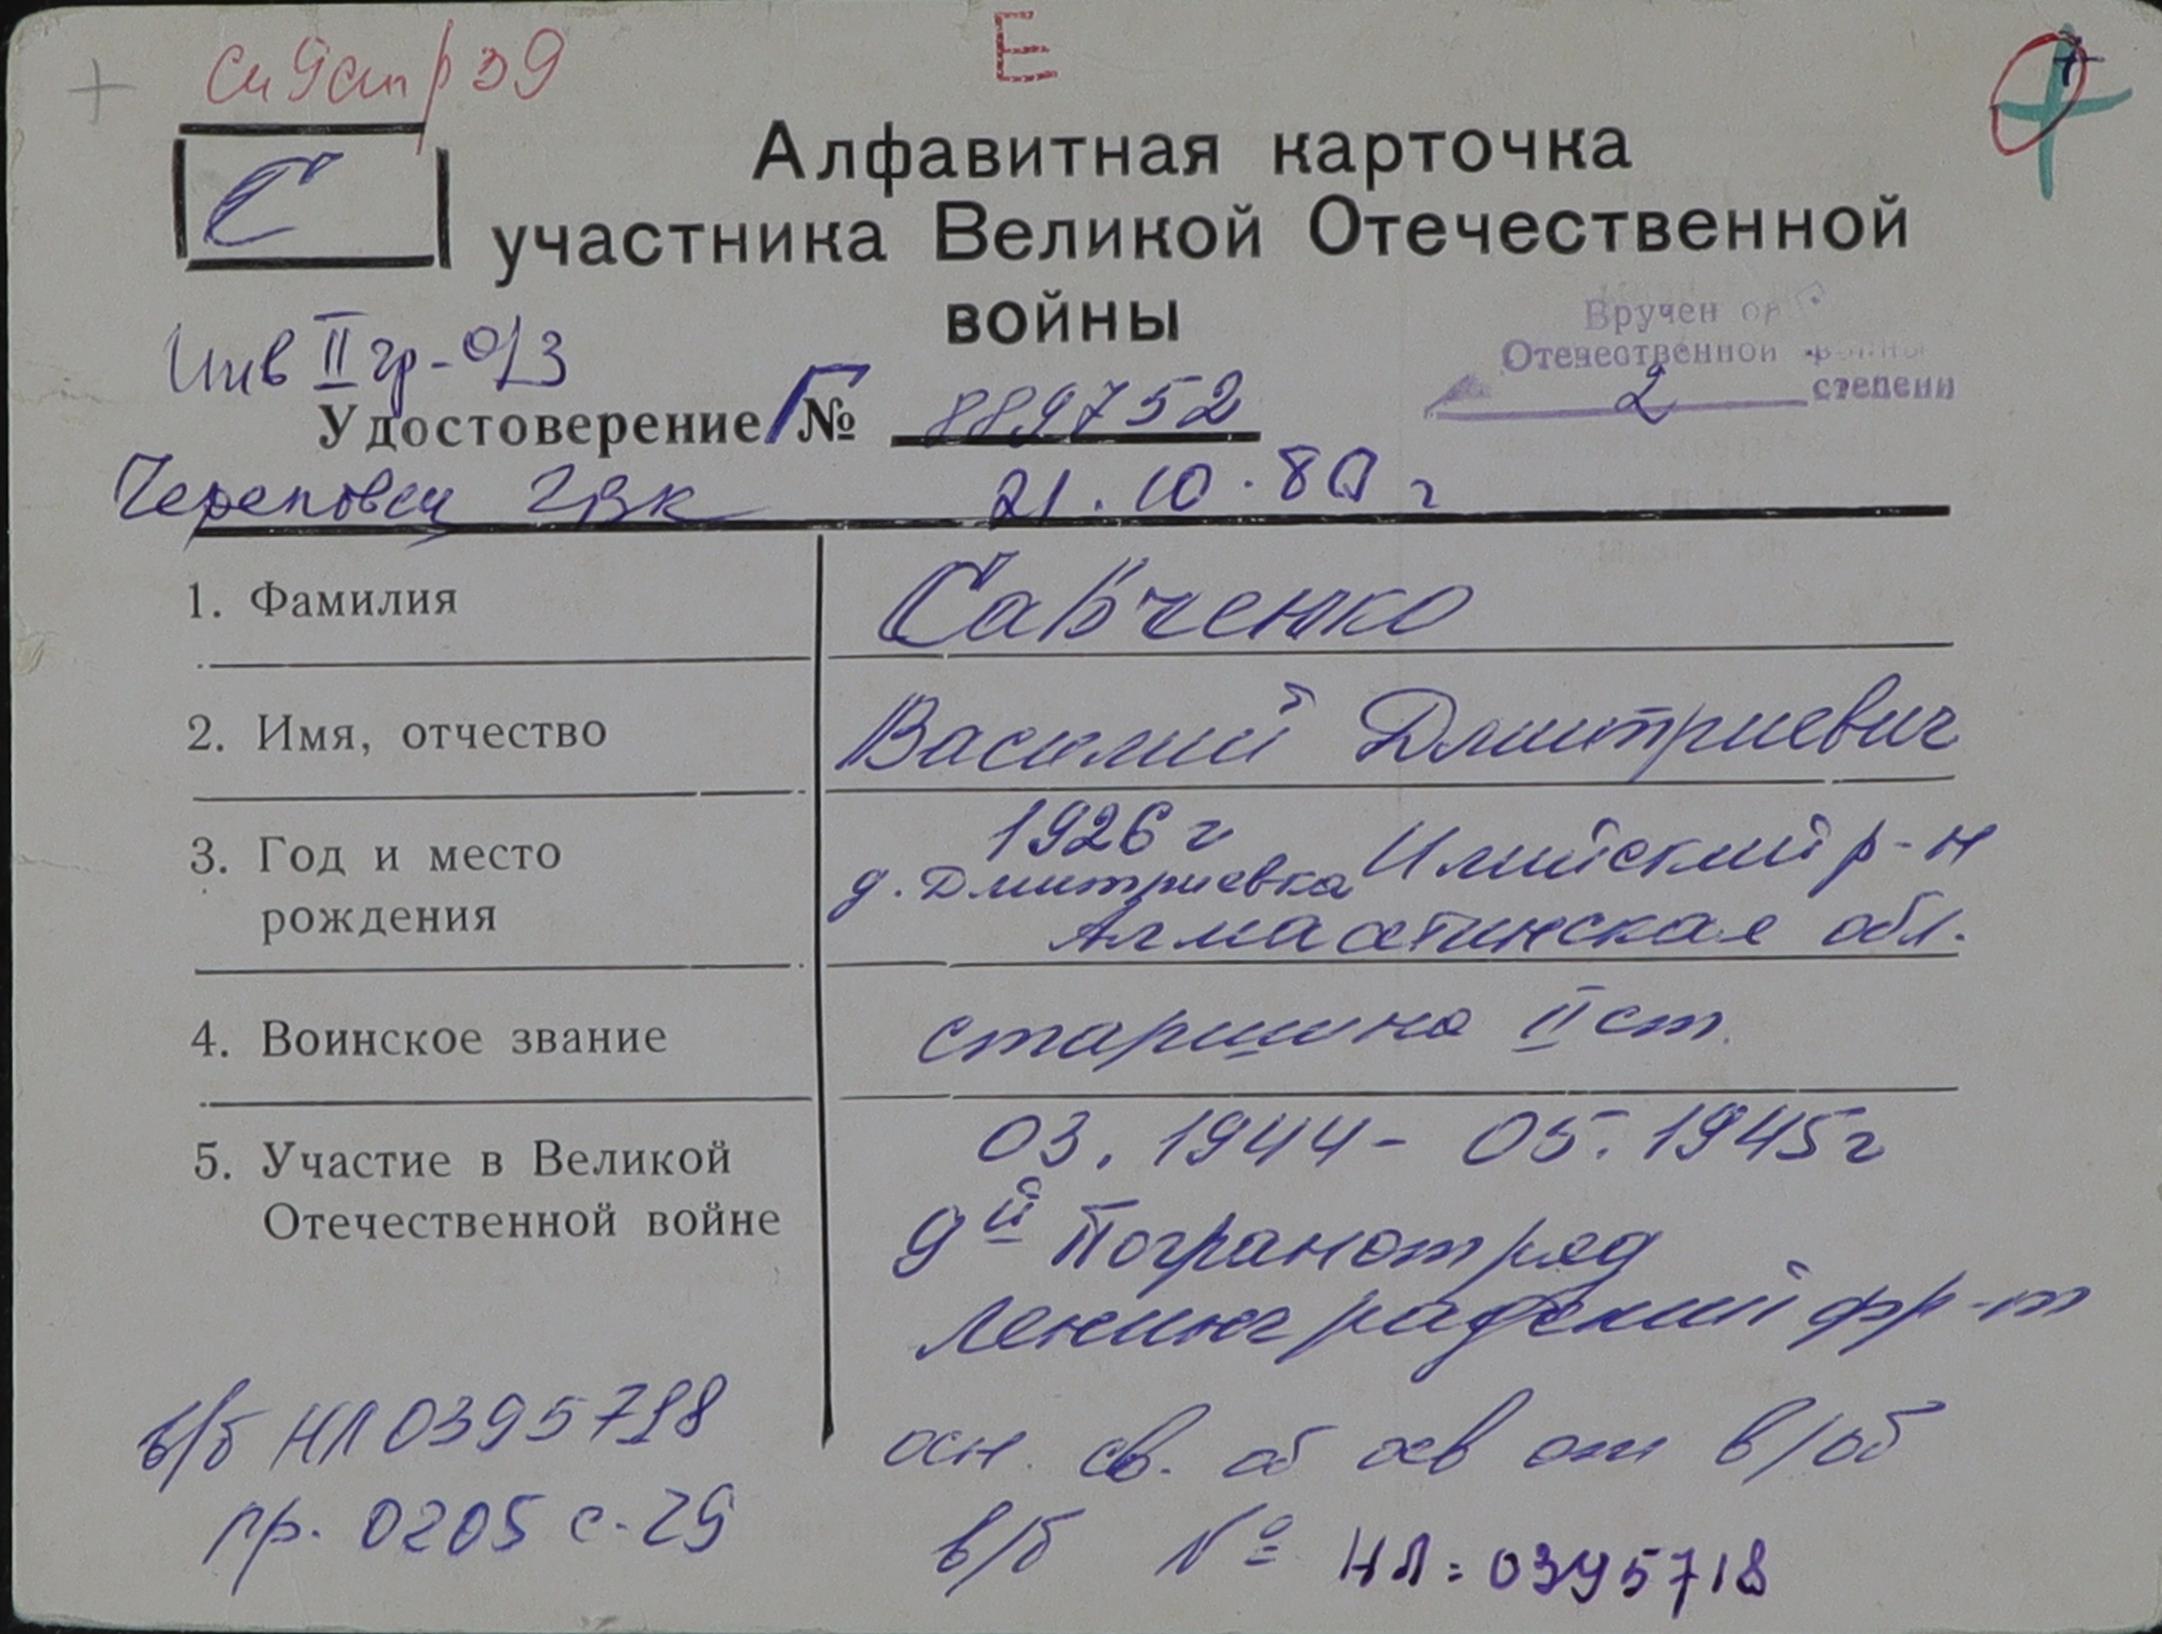 Е
Сп 9 стр 39
С
Алфавитная карточка
участника Великой Отечественной
войны
Вручен ор
Отечественной войны
2 степени
Инв II гр - о/з
Удостоверение Г № 889752
Череповец ГВК 21.10.80 г
1. Фамилия Савченко
2. Имя, отчество Василий Дмитриевич
3. Год и место 1926 г
д. Дмитриевка Илийский р-н
рождения Алмаатинская обл.
4. Воинское звание старшина II ст.
5. Участие в Великой 03.1944 - 05.1945 г
Отечественной войне 9й Погранотряд
Ленинградский фр-т
в/б НЛ 0395718
осн. св. об осв от в/об
пр. 0205 с-29
в/б № НЛ: 0395718